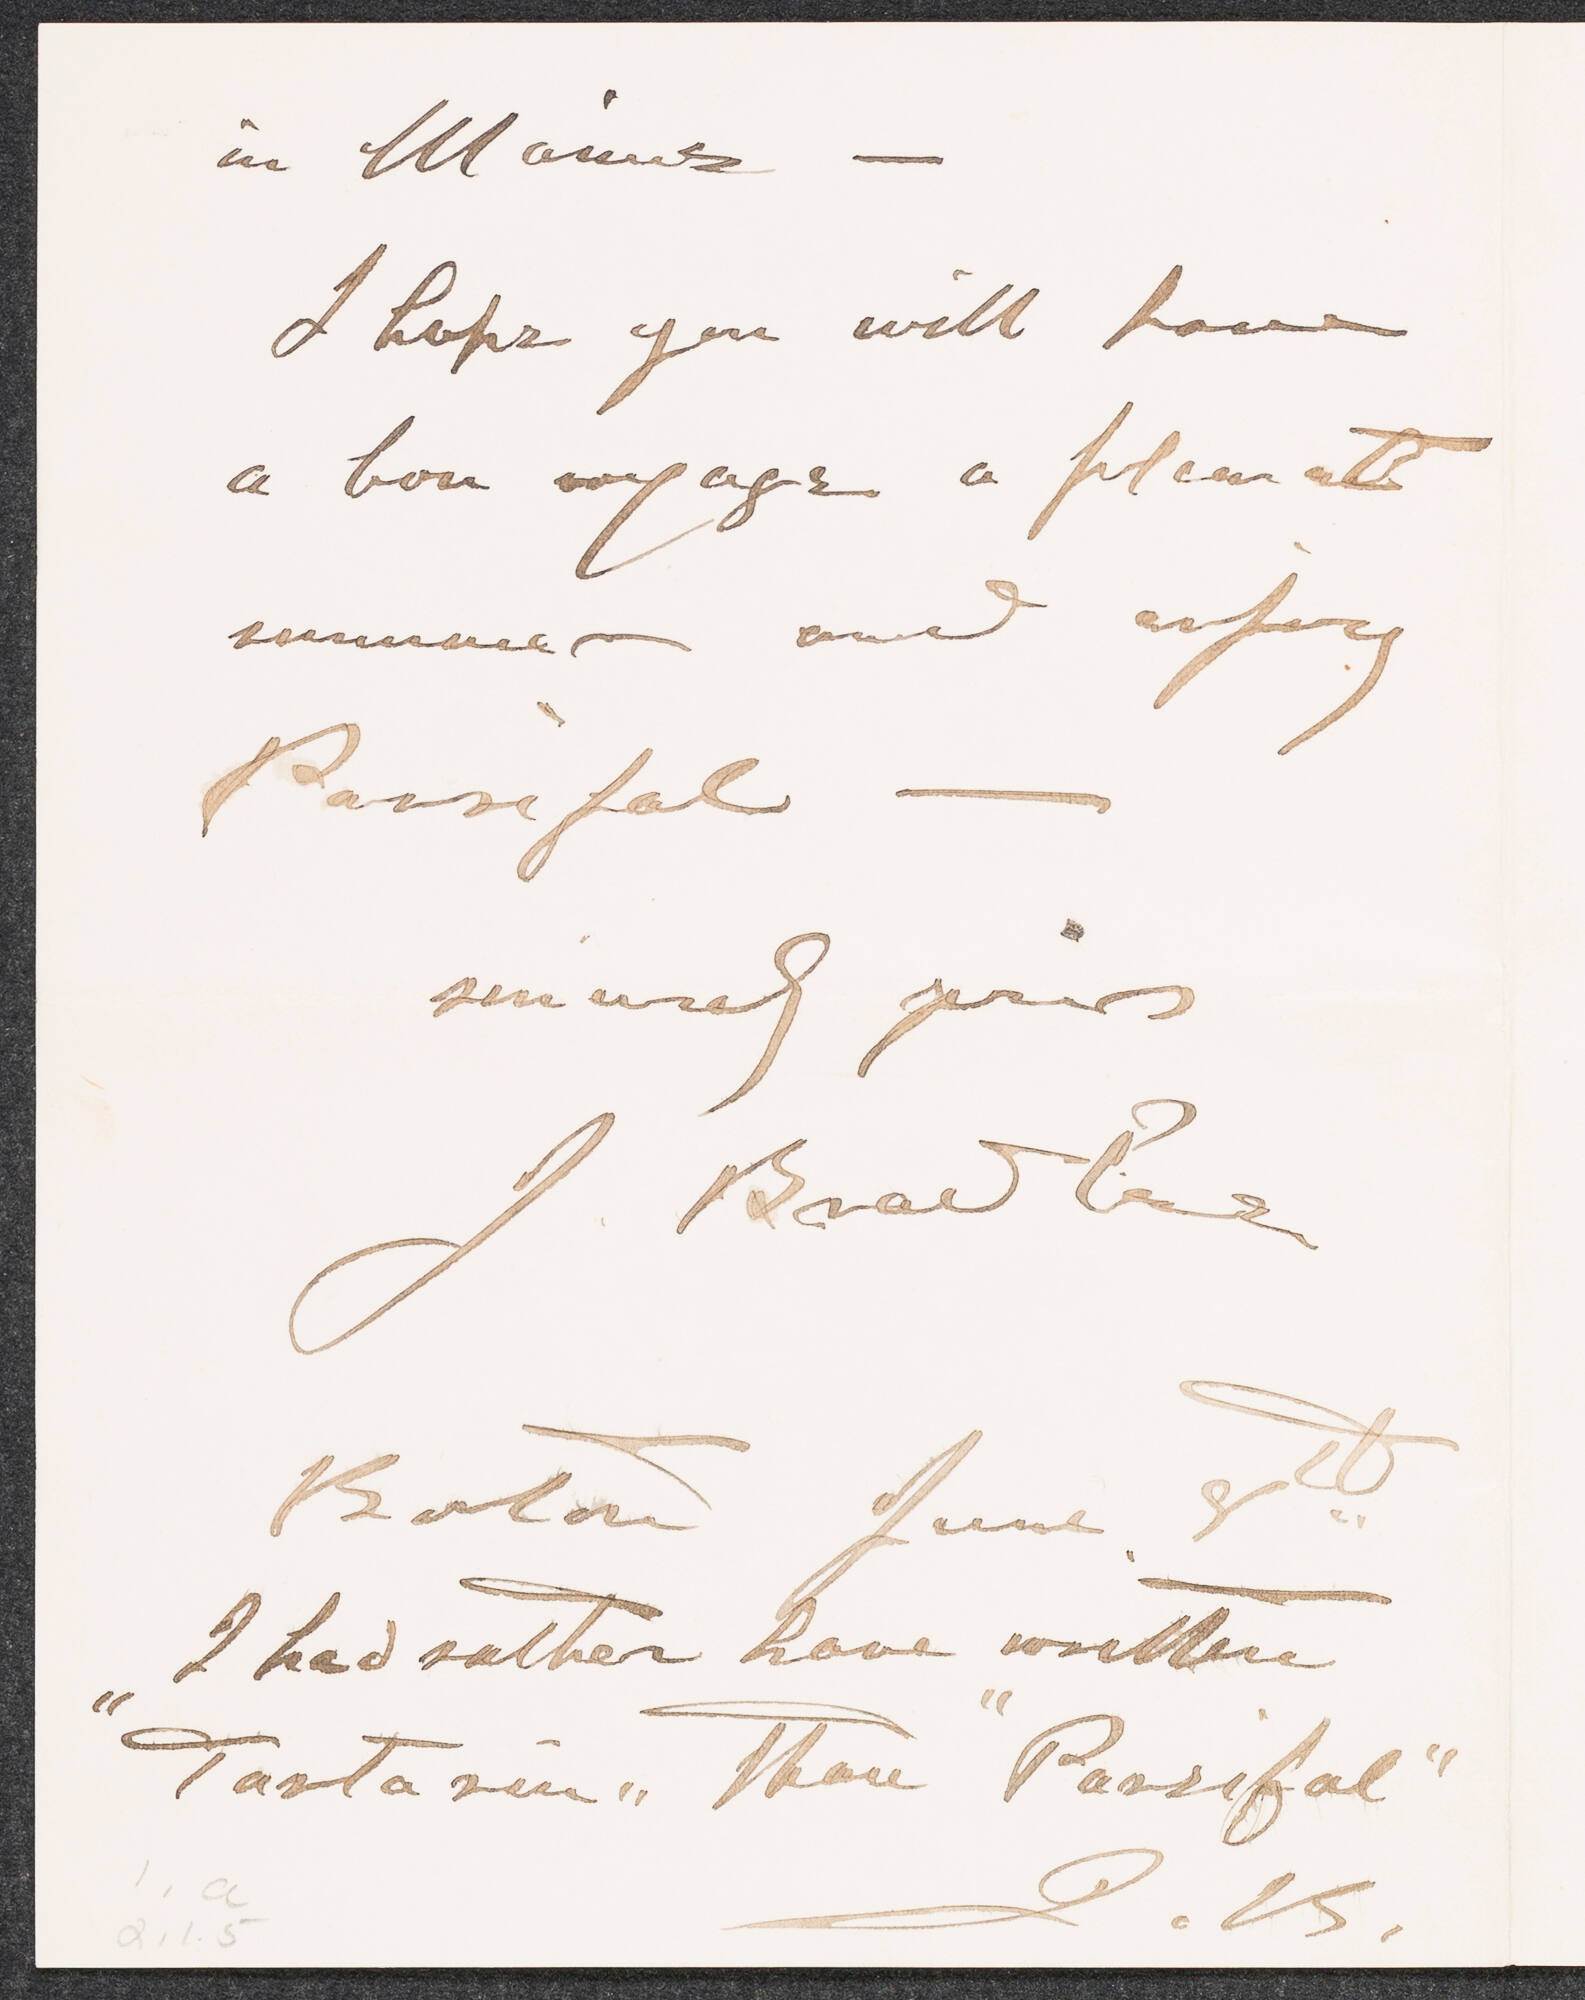 in Maine —
I hope you will have
a bon voyage a pleasant
summer and enjoy
Parsifal —
sincerely yours
J. Bradlee
Boston June 9th
I had rather have written
"Tartarin" than "Parsifal"
J. B.
1, a
2.1.5